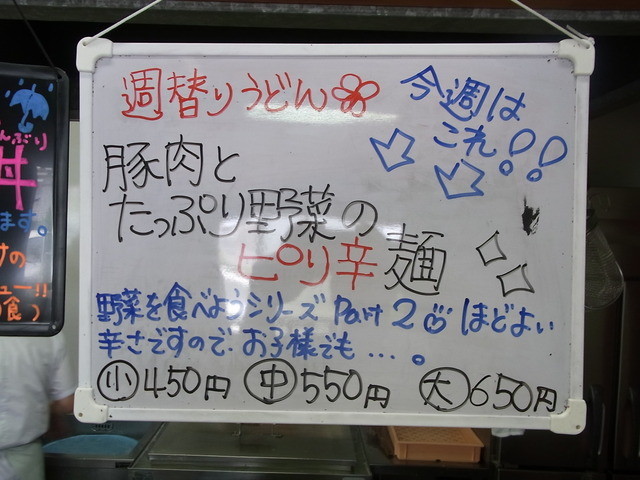 週替りうどん
今週は
これ!!
豚肉と
たっぷり野菜の
ピリ辛麺
野菜を食べようシリーズ Part 2 ほどよい
辛さですので お子様でも…。
小450円 中550円 大650円
んぶり
丼
ます。
けの
ュー!!
食)